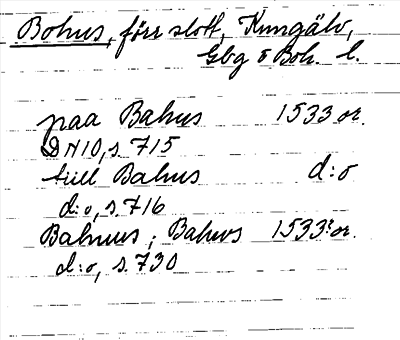 Bohus, förr slott, Kungälv,
Gbg o Boh. l.
paa Bahus 1533 or.
DN10, s. 715
till Bahus d:o
d:o, s. 716
Bahuus; Bahus 1533? or.
d:o, s. 730